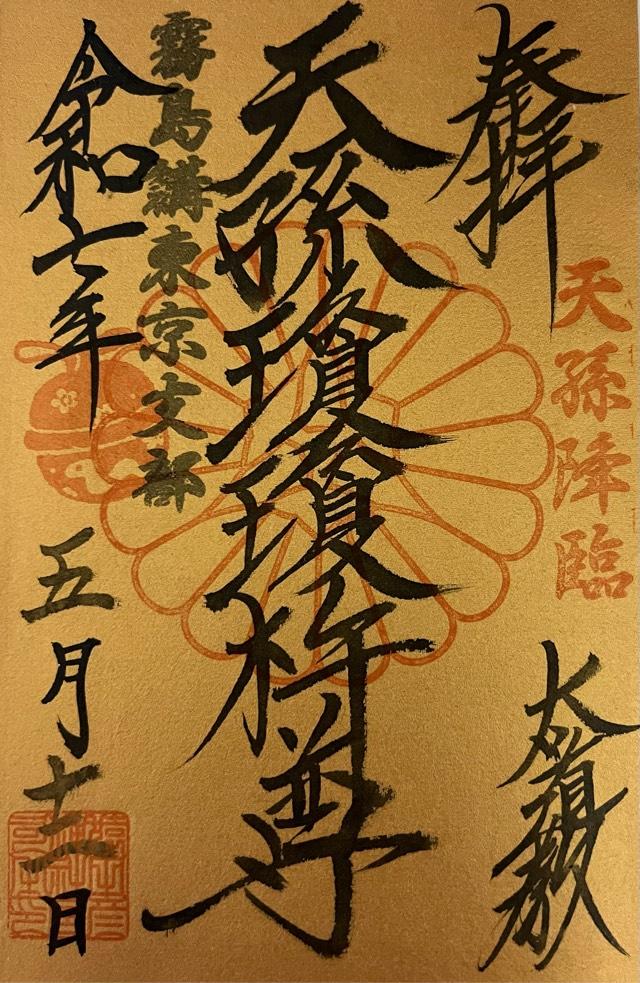 奉拝
天孫降臨
天孫瓊瓊杵尊
霧島講東京支部
令和七年
五月十二日